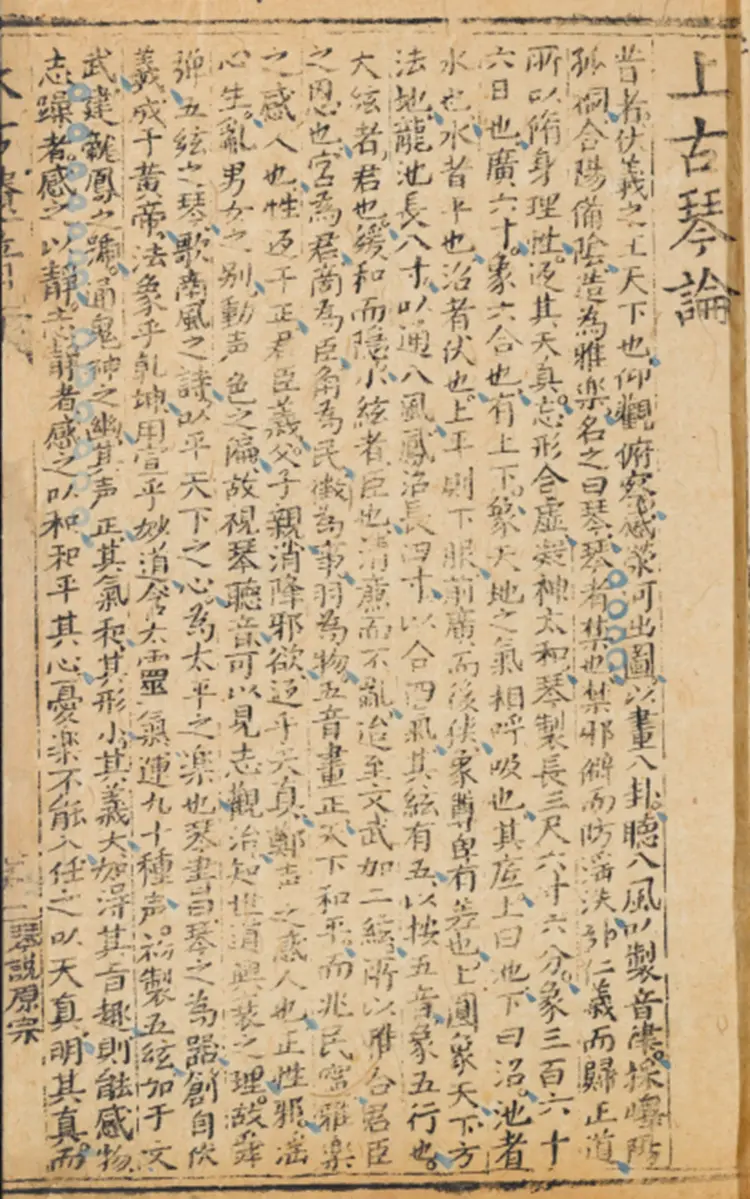 上古琴論
昔者伏義之王天下也仰觀俯察感荥河出圖以畫八卦聽八風以製音律採嶧陽
孤桐合陽備陰造為雅楽名之曰琴琴者禁也禁邪僻而防滛泆郁仁義而歸正道
所以脩身理性返其天真忘形合虚凝神太和琴製長三尺六寸六分象三百六十
六日也廣六寸象六合也有上下象天地之氣相呼吸也其底上曰池下曰沼池者
水也水者平也沼者伏也上平則下服前廣而後狹象尊卑有差也上圓象天下方
法地龍池長八寸以通八風鳳沼長四寸以合四氣其絃有五以按五音象五行也
大絃者君也緩和而隱小絃者臣也清亷而不亂迨至文武加二絃所以雅合君臣
之恩也宮為君商為臣角為民徵為事羽為物五音畫正天下和平而兆民寧雅楽
之感人也性返于正君臣義父子親消降邪欲返乎天真鄭声之感人也正性邪滛
心生亂男女之别動声色之偏故視琴聽音可以見志觀治知世道興衰之理故舜
弹五絃之琴歌南風之詩以平天下之心為太平之楽也琴書曰琴之為器創自伏
義成于黄帝法象乎乾坤用宣乎妙道含太靈氣運九十種声初製五絃加于文
武建龍鳳之號通鬼神之幽其声正其氣和其形小其義大如得其旨趣則能感物
志躁者感之以静志静者感之以和和平其心憂楽不能入任之以天真明其真而
二 琴説原宗